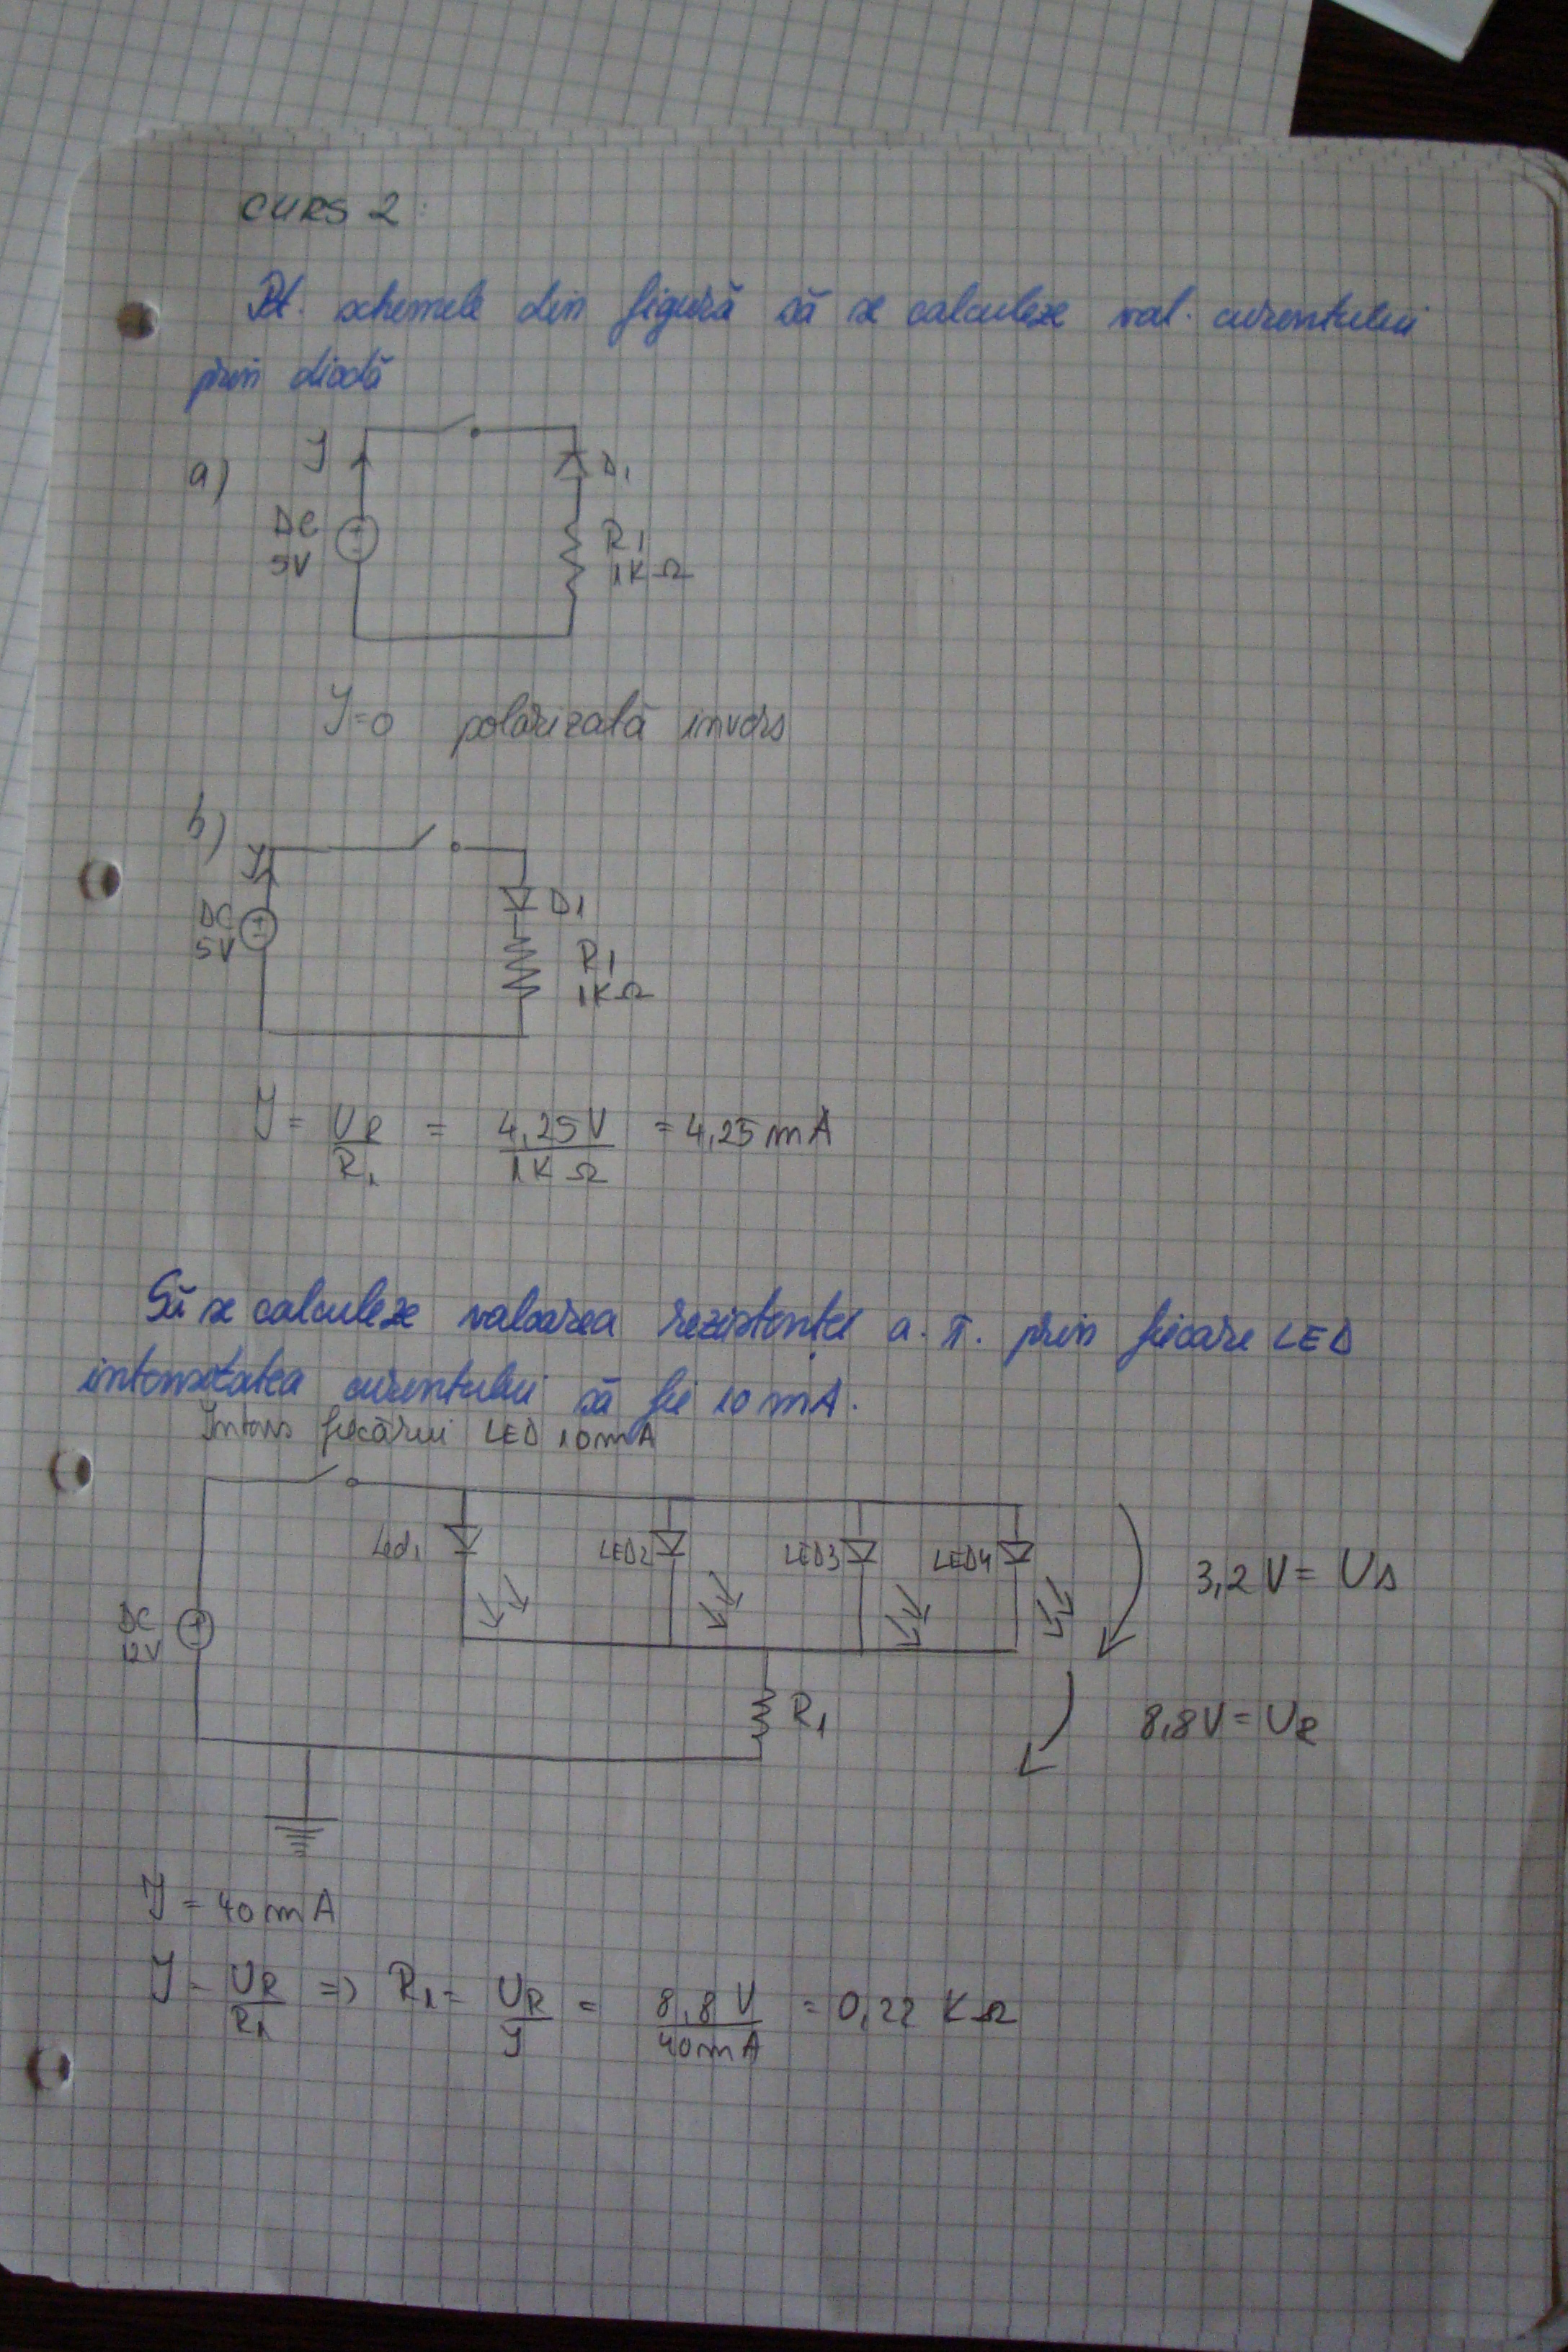 CURS 2
Pt. schemele din figură să se calculeze val. curentului
prin diodă
a)
I
D1
DC
5V
R1
1KΩ
I=0 polarizată invers
b)
I
DC
5V
D1
R1
1KΩ
I = UR/R1 = 4,25V/1KΩ = 4,25mA
Să se calculeze valoarea rezistenței a. î. prin fiecare LED
intensitatea curentului să fie 10 mA.
Intens fiecărui LED 10mA
Led1 LED2 LED3 LED4
3,2V = UΔ
DC
12V
R1
8,8V = UR
I = 40mA
I = UR/R1 => R1 = UR/I = 8,8V/40mA = 0,22 KΩ